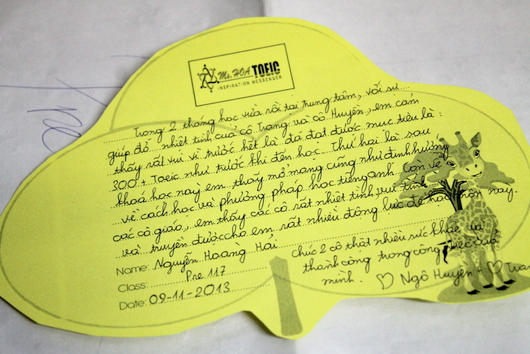 Ms. HOA TOEIC
INSPIRATION MESSENGER
Trong 2 tháng học vừa rồi tại trung tâm, với sự
giúp đỡ nhiệt tình của cô Trang và cô Huyền, em cảm
thấy rất vui vì trước hết là đã đạt được mục tiêu là
300+ Toeic như trước khi đến học. Thứ hai là sau
khoá học này em thấy mở mang cũng như định hướng
về cách học và phương pháp học tiếng anh. Còn về
các cô giáo, em thấy các cô rất nhiệt tình, vui tính
và truyền được cho em rất nhiều động lực để học này.
Name: Nguyễn Hoàng Hải
chúc 2 cô thật nhiều sức khoẻ và
Class: Pre 117
thành công trong công việc của
Date: 09-11-2013
mình. ♡ Ngô Huyền ♡